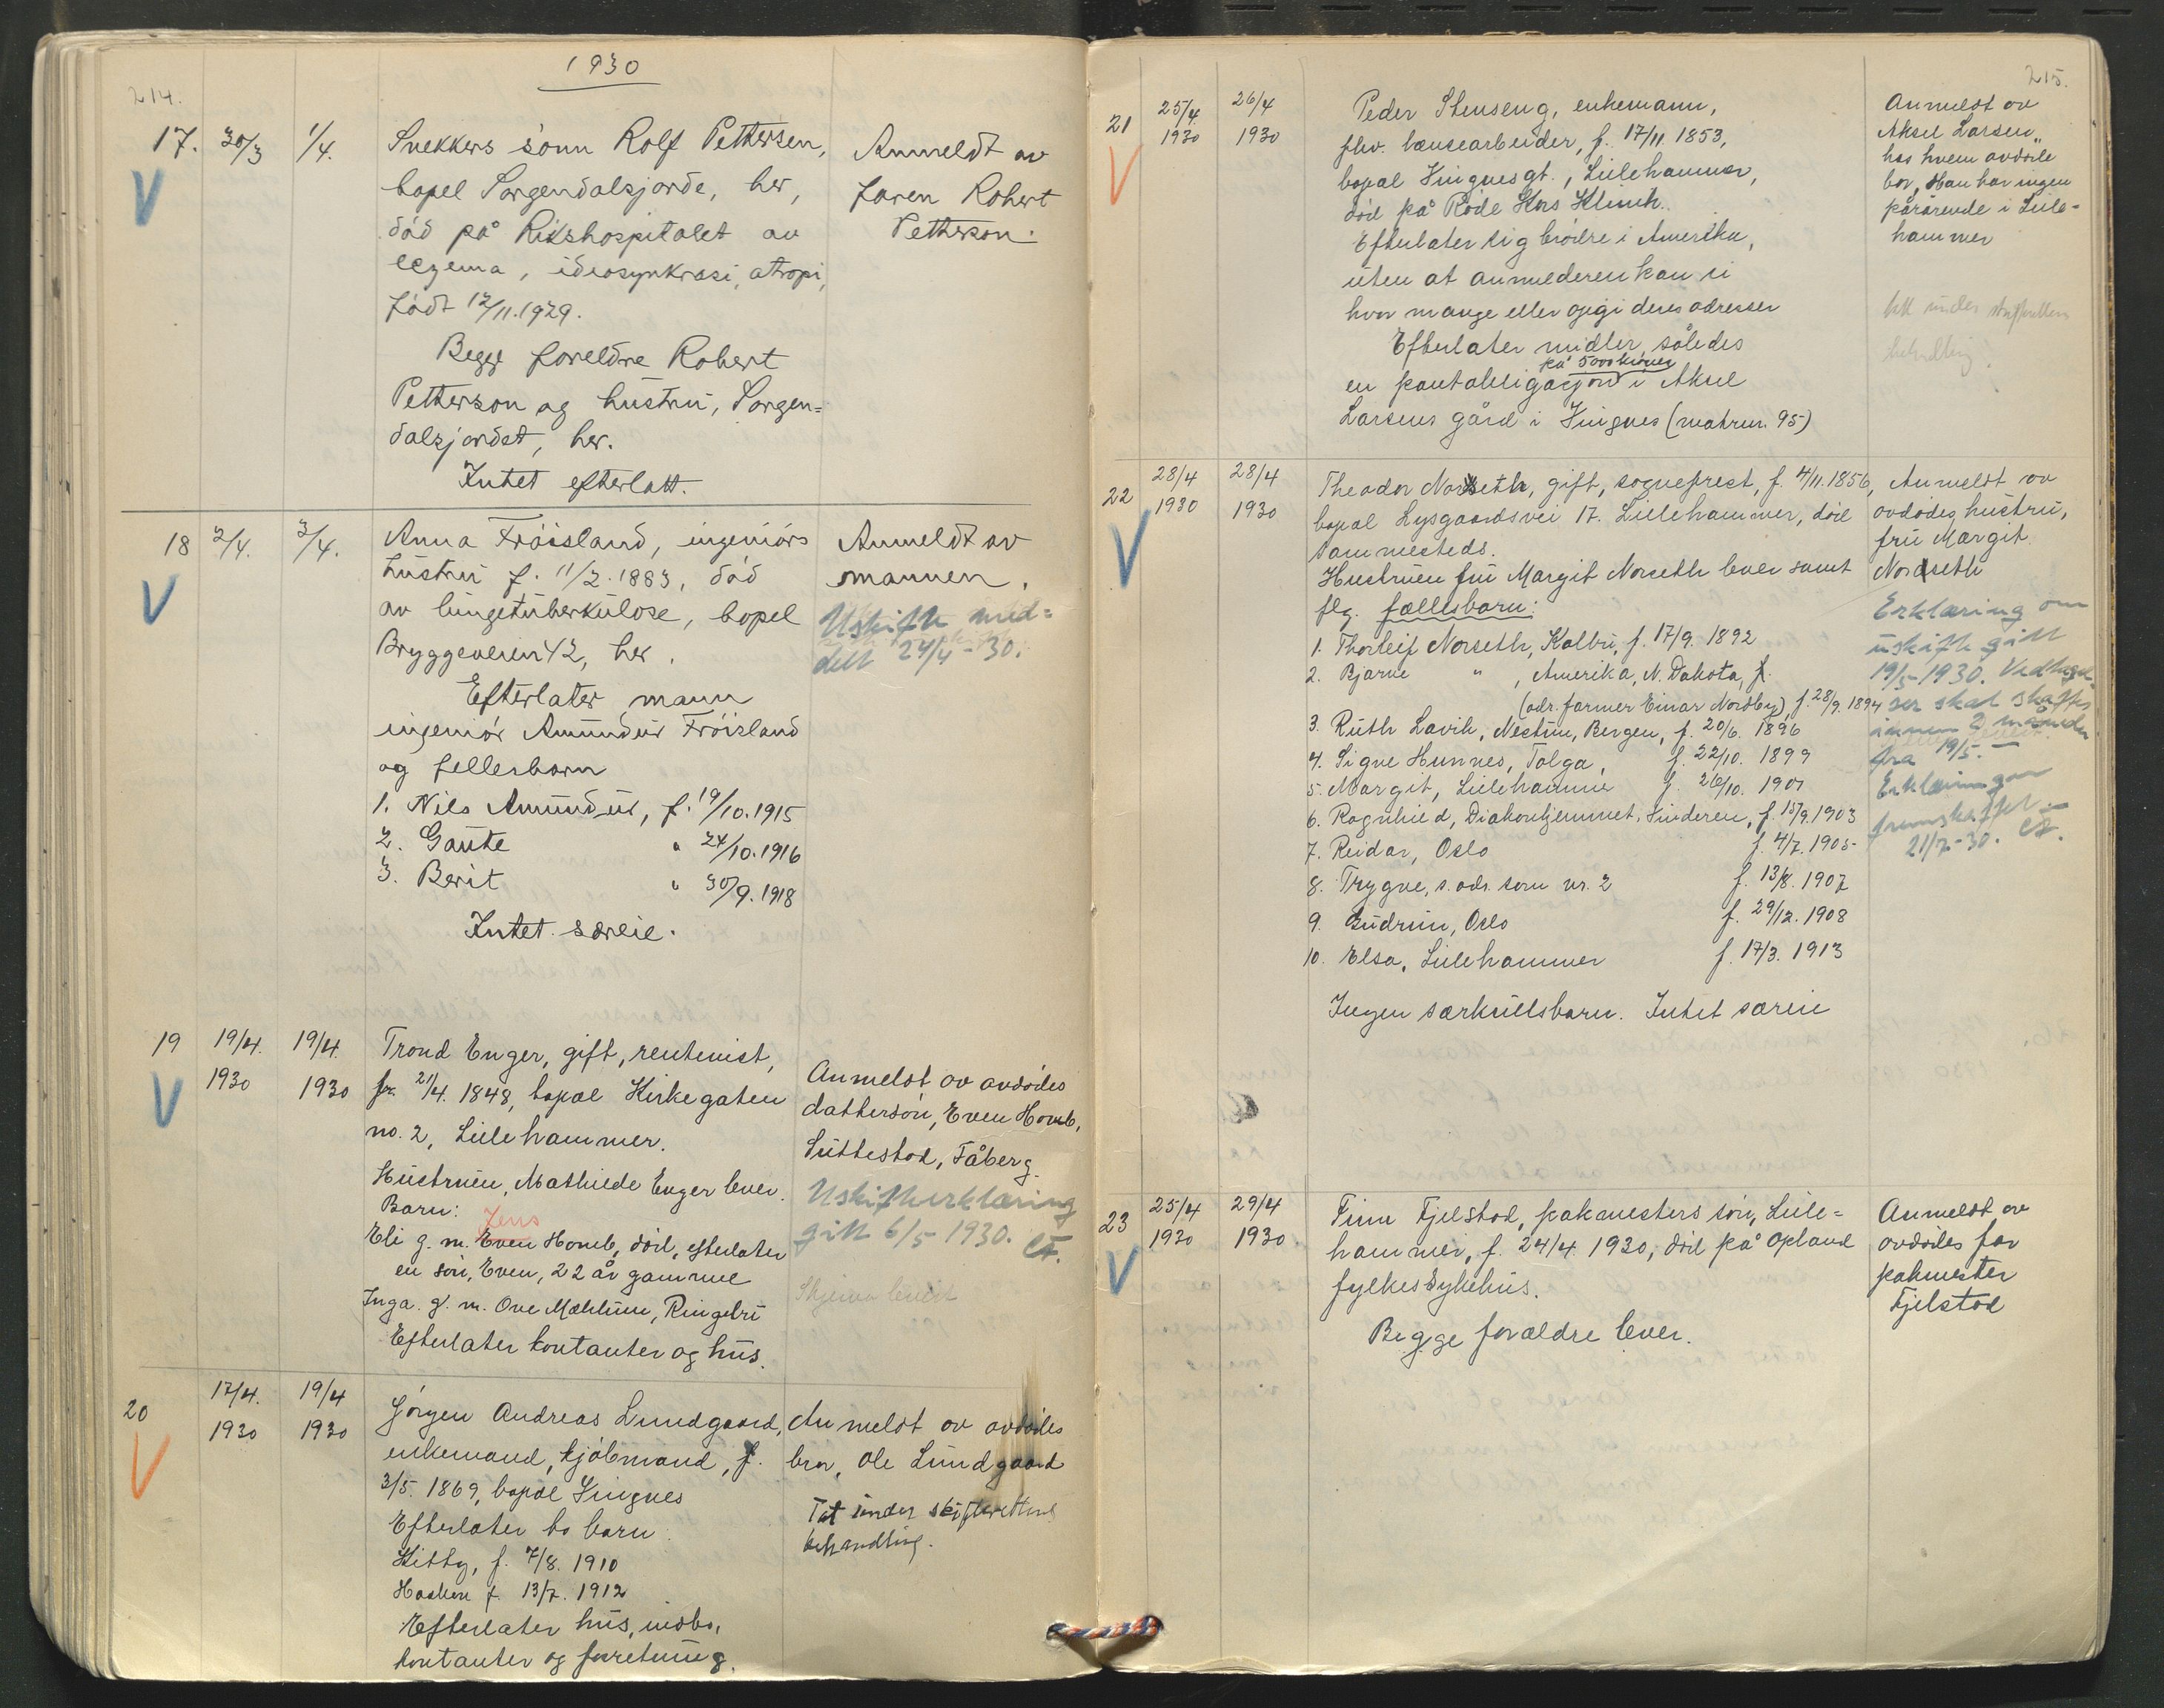 1930
214.
17. 30/3 1/4. Snekkers sønn Rolf Pettersen,
bopel Sorgendalsjorde, her,
død på Rikshospitalet av
eczema, ideosynkrasi, atropi,
født 12/11.1929.
Begge foreldre Robert
Petterson og hustru, Sorgen=
dalsjordet, her.
Intet efterlatt.
Anmeldt av
faren Robert
Petterson.
18 2/4. 3/4. Anna Frøisland, ingeniørs
hustru f. 11/2.1883, død
av lungetuberkulose, bopel
Bryggeveien 42, her.
Efterlater mann
ingeniør Amundur Frøisland
og fellesbarn
1. Nils Amundur, f. 19/10.1915
2. Gaute " 24/10.1916
3. Berit " 30/9.1918
Intet særeie.
Anmeldt av
mannen.
Uskifte med=
delt 24/4-30.
19 19/4. 1930 19/4. 1930 Trond Enger, gift, rentenist,
f. 21/4. 1848, bopæl Kirkegaten
no. 2, Lillehammer.
Hustruen, Mathilde Enger lever.
Barn:
Jens
Eli g. m. Even Homb, død, efterlater
en søn, Even, 22 år gammel
Inga. g. m. Ove Mæhlum, Ringebu
Efterlater kontanter og hus.
Anmeldt av avdødes
dattersøn, Even Homb,
Suttestad, Fåberg.
Uskifteerklæring
gitt 6/5 1930.
Skjema levert
20 17/4. 1930 19/4 1930 Jørgen Andreas Lundgaard,
enkemand, kjøbmand, f.
3/5. 1869, bopæl Vingnes
Efterlater to barn
Kitty, f. 7/8. 1910
Haakon f. 13/7. 1912
Efterlater hus, indbo,
kontanter og forretning.
Anmeldt av avdødes
bror, Ole Lundgaard
Tat under skifterettens
behandling.
215.
21 25/4 1930 26/4 1930 Peder Stenseng, enkemann,
fhv. lænsearbeider, f. 17/11 1853,
bopæl Vingnesgt., Lillehammer,
død på Røde Kors Klinik.
Efterlater sig brødre i Amerika,
uten at anmelderen kan si
hvor mange eller opgi deres adresser
Efterlater midler, således
på 5000 kroner
en pantobligasjon i Aksel
Larsens gård i Vingnes (matrnr. 95)
Anmeldt av
Aksel Larsen,
hos hvem avdøde
bor, Han har ingen
pårørende i Lille-
hammer
tatt under skifterettens
behandling.
22 28/4 1930 28/4 1930 Theodor Norseth, gift, sogneprest, f. 4/11.1856,
bopæl Lysgaardsvei 17. Lillehammer, død
sammesteds.
Hustruen fru Margit Norseth lever samt
flg. fællesbarn:
1. Thorleif Norseth, Kolbu, f. 17/9. 1892
2. Bjarne " , Amerika, N. Dakota, f.
(adr. farmer Einar Nordby), f. 28/9. 1894
3. Ruth Lavik, Nestun, Bergen, f. 20/6. 1896
4. Signe Hunnes, Tolga, f. 22/10. 1899
5. Margit, Lillehammer f. 26/10. 1901
6. Ragnhild, Diakonhjemmet, Vinderen, f. 15/9.1903
7. Reidar, Oslo f. 4/7. 1905
8. Trygve, s. adr. som nr. 2 f. 13/8. 1907
9. Gudrun, Oslo f. 29/12. 1908
10. Elsa, Lillehammer f. 17/3. 1913
Ingen særkullsbarn. Intet særeie
Anmeldt av
avdødes hustru,
fru Margit
Norseth
Erklæring om
uskifte gitt
19/5-1930. Vedtagel-
ser skal skaffes
innen 2 måneder
fra 19/5.-
Erklæringer
fremskaffet.-
21/7-30.
23 25/4 1930 29/4 1930 Finn Fjelstad, pakmesters søn, Lille=
hammer, f. 24/4. 1930, død på Opland
fylkessykehus.
Begge forældre lever.
Anmeldt av
avdødes far
pakmester
Fjelstad